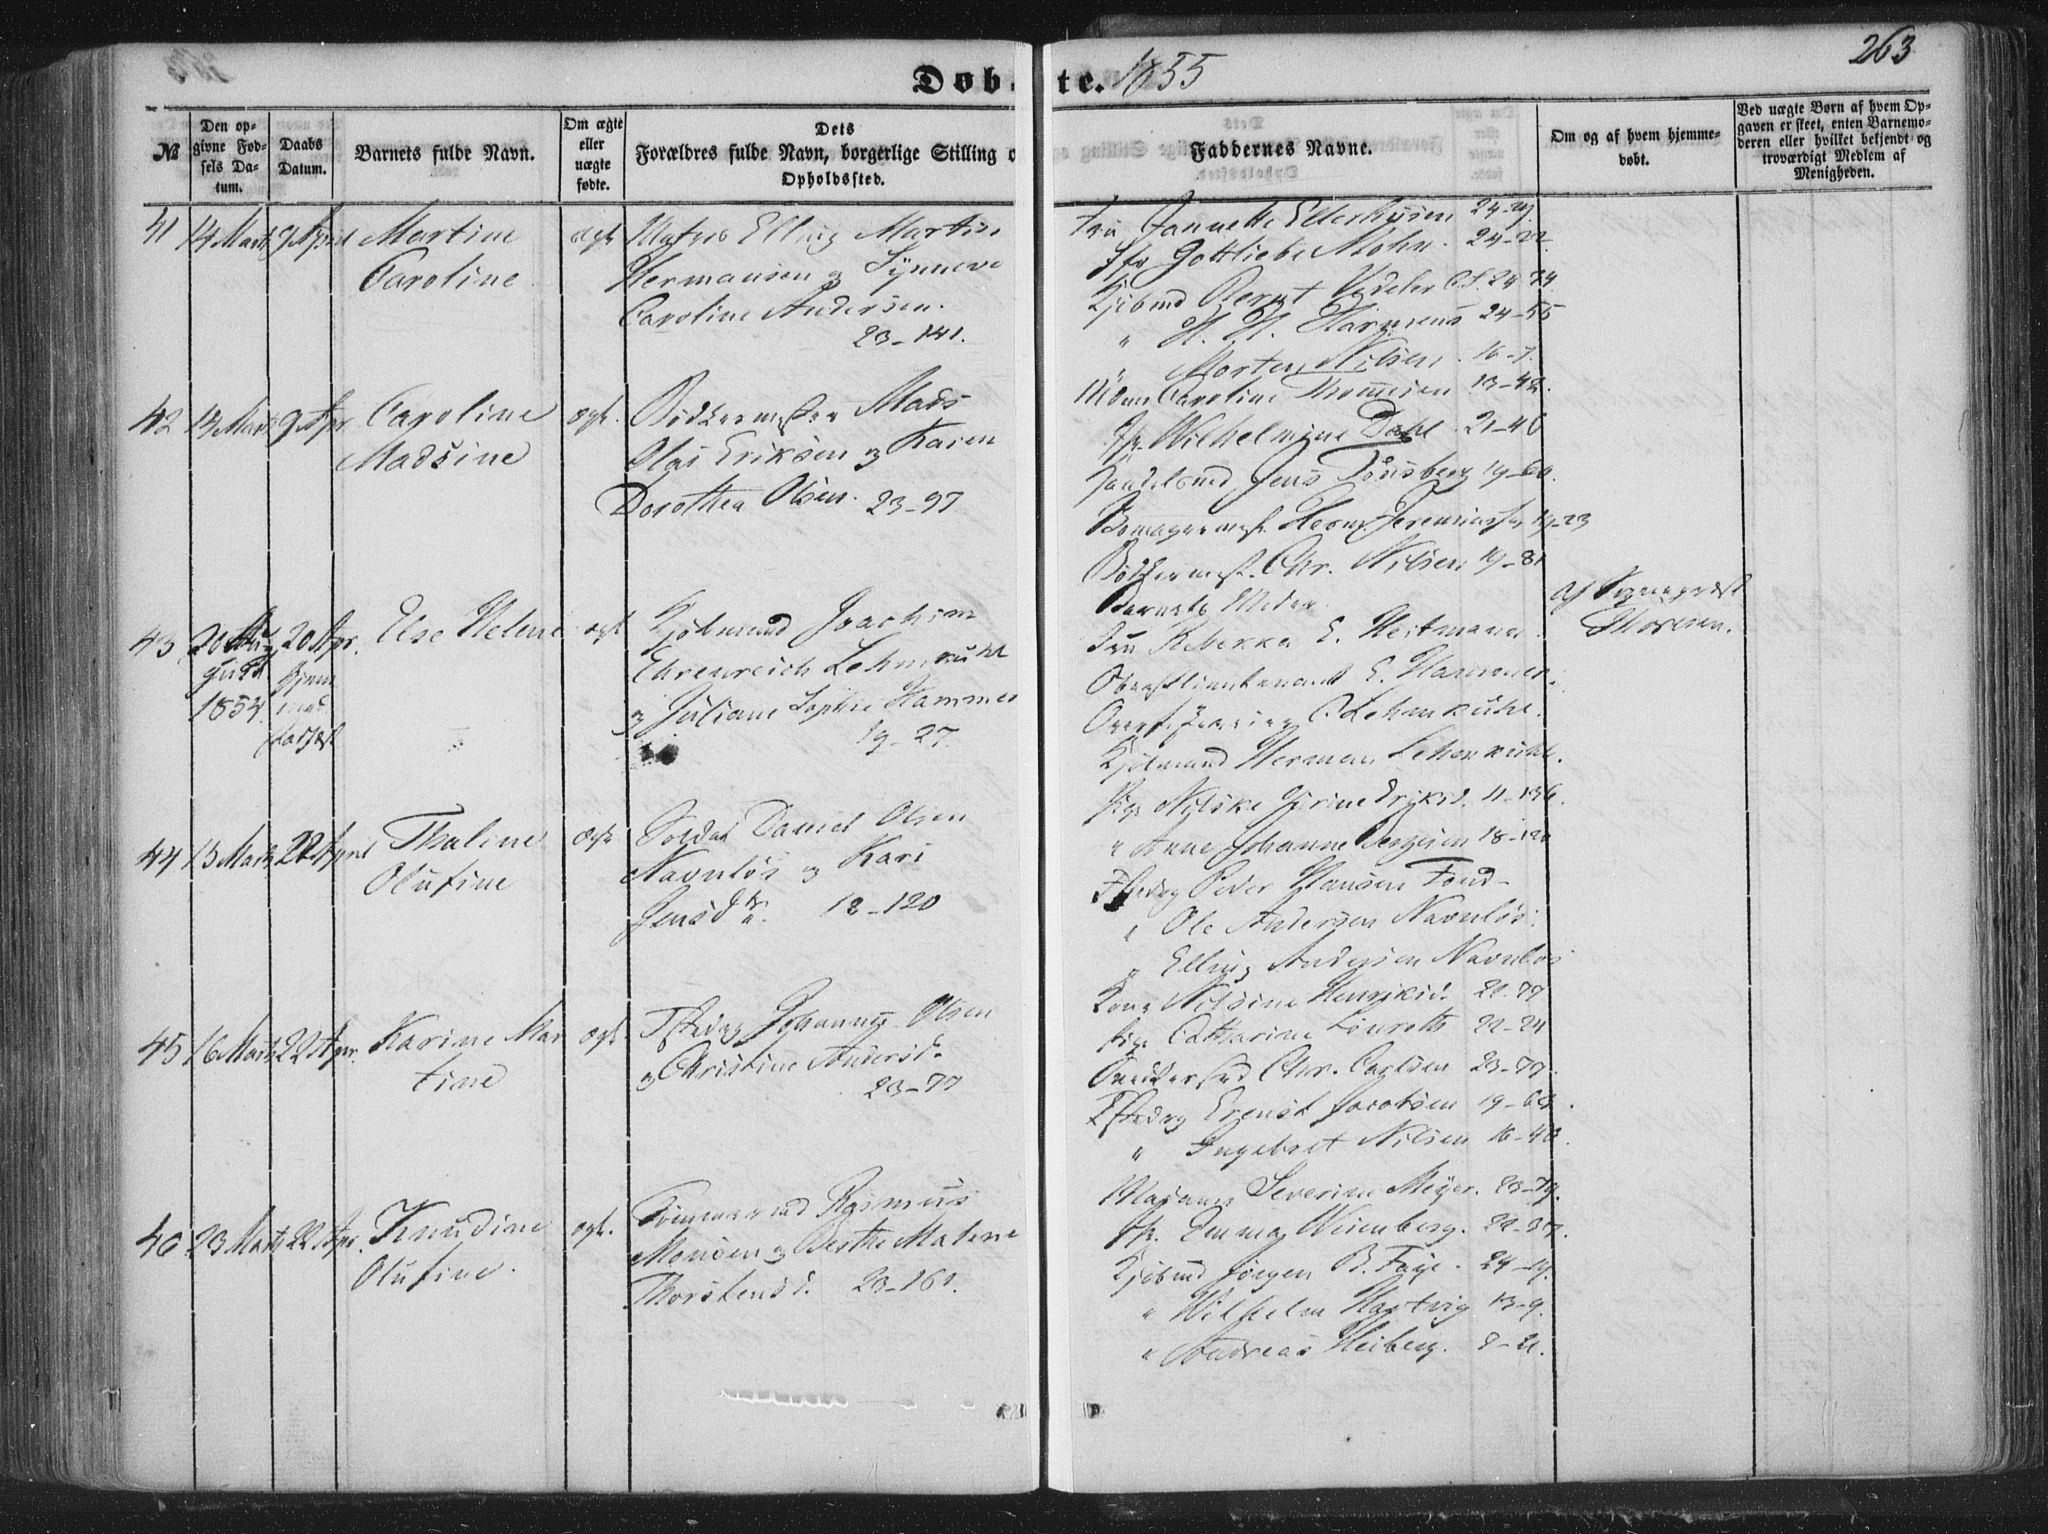 263
Døb- te. 1855
№
Den opgivne Fødsels Datum.
Daabs Datum.
Barnets fulde Navn.
Om ægte eller uægte fødte.
Dets Forældres fulde Navn, borgerlige Stilling o
Opholdssted.
Faddernes Navne.
Om og af hvem hjemmedøbt.
Ved uægte Børn af hvem Opgaven er skeet, enten Barnemoderen eller hvilket bekjendt og troværdigt Medlem af Menigheden.
41 14 Marts 9 April Martine
Caroline
ægte Elling Martin
Hermansen og Synneve
Caroline Andersen.
23-141.
Fru Jannette Ellerhusen 24-19.
Jfr Gottliebe Mohn. 24-22.
Kjøbmd Bernt
" H. H. Harmens 24-55
" Morten Nilsen. 16-7.
42 14 Marts 9 Apr Caroline
Madsine
ægt. Bødkermester Mads
Olai Eriksen og Karen
Dorothea Olsen. 23-97
Mdme Caroline Thomesen 13-42.
Jfr. Wilhelmine Dahl. 21-46
Handelsmd Jens Tønsberg 19-60.
19-23
Bødkermest. Chr. Nilsen 19-81
43 20 August 1854. 20 Apr. hjem med Forfest Else Helene
ægt Kjøbmand Joachim
Ehrenreich Lehmkuhl
og Juliane Sophie Hammer
19-27.
Barnets Moder.
Fru Rebekka E. Heitmann.
Oberstlieutenant E. Hammer.
C. Lehmkuhl.
Kjøbmand Herman Lehmkuhl.
Af Sogneprest
Thoresen.
44 15 Marts 22 April Thaline
Olufine
ægte Soldat Daniel Olsen
Navnløs og Kari
Jensdtr. 18-120
Pige Nilske Jørine Eriksd. 11-136.
" Anne Johanne Bergesen 18-120
Peder Hansen Fond-
" Ole Andersen Navnløs.
" Elling Andersen Navnløs
45 16 Marts 22 Apr. Karine Mar
tine
ægt. Johannes Olsen
og Christine Andersd.
23-77
Kone Nilsine Henriksd. 20-77
Pige Catharine Lönroth 22-24
Chr. Carlsen 23-77.
Ernst Jacobsen 19-64.
" Ingebret Nilsen 16-40.
46 23 Marts 22 Apr. Knudine
Olufine.
ægt. Tømmermd Rasmus
Monsen og Berthe Malene
Thorstensd. 23-161.
Madame Severine Meyer. 23-79.
Jfr. Emma Wesenberg. 20-37.
Kjøbmd Jørgen B. Faye. 24-19.
" Wilhelm Hartvig 13-9.
" Andreas Heiberg. 8-21.